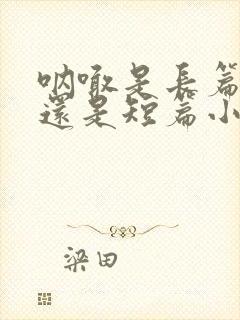 呐喊是長篇
還是短篇小
梁田